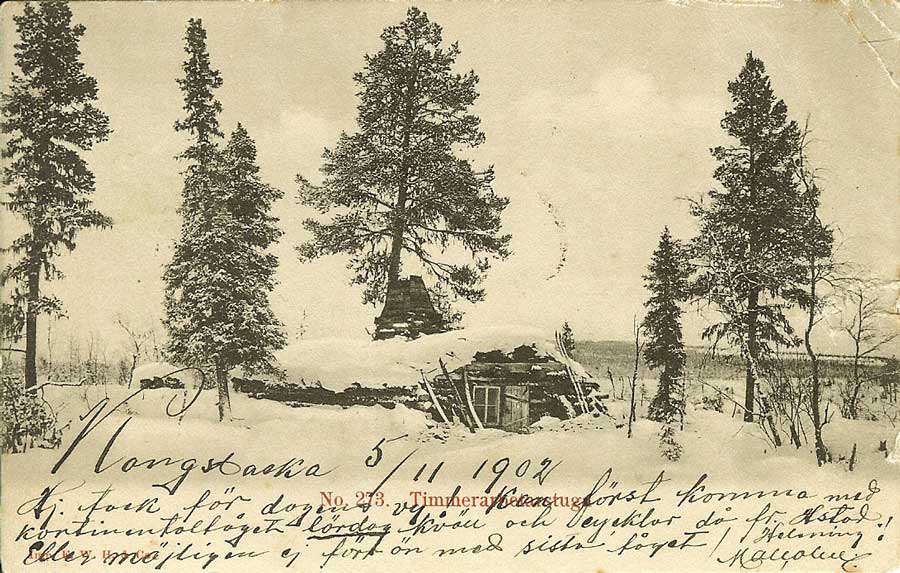 Kongsbacka 5/11 1902
No. 273. Timmerarbetarstuga
Hj. tack för dagen, kan först komma med
kontinentaltåget lördag kväll och cycklar då fr. Hstad
Eller möjligen ej förr än med sista tåget / Helsning!